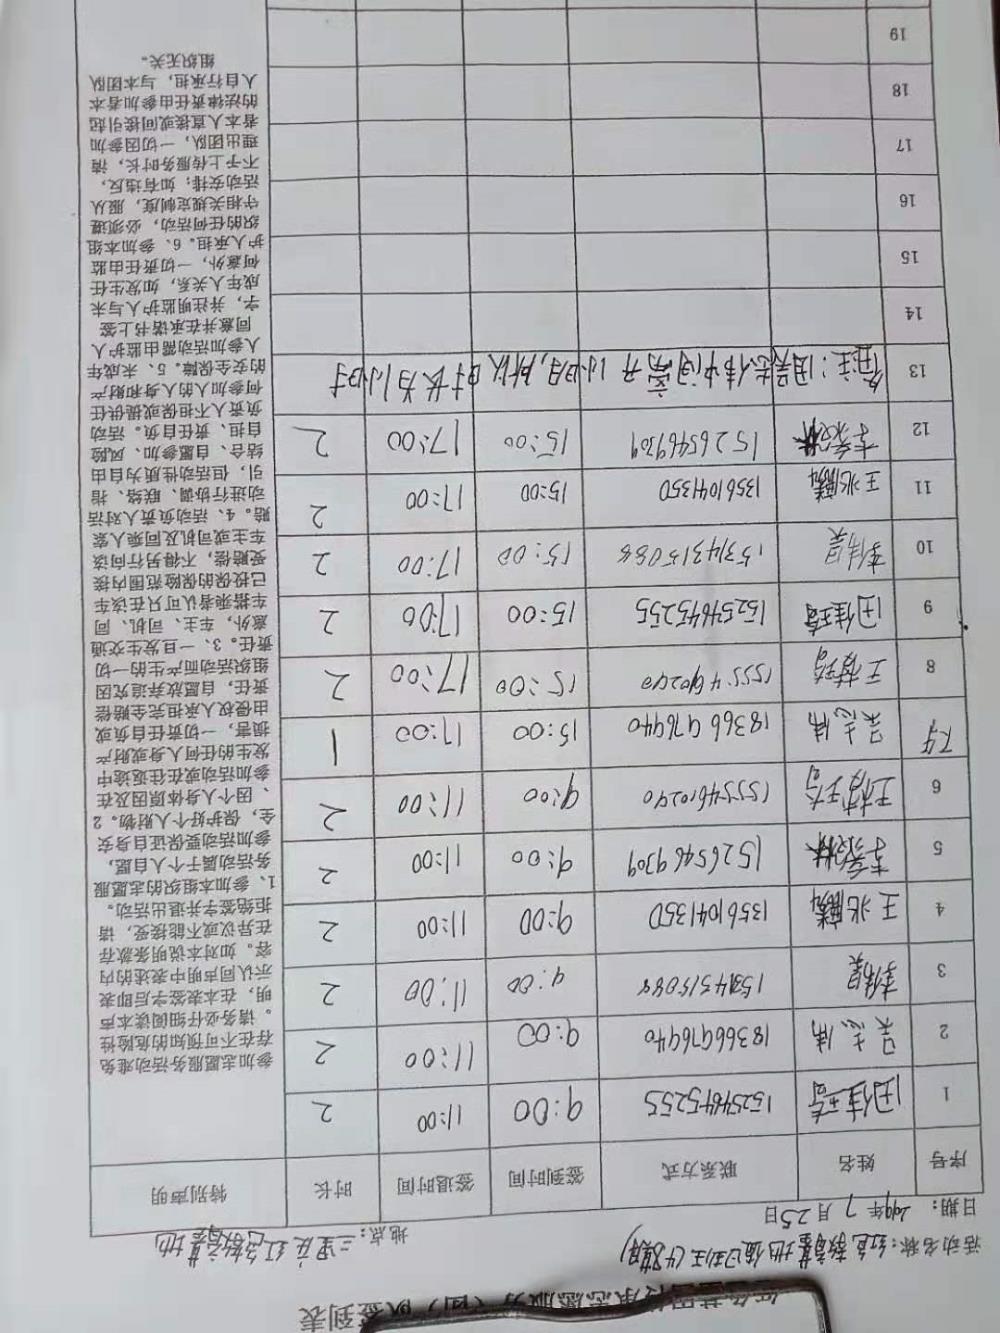 承志愿服务（团）队签到表
活动名称：红色教育基地值日班
日期：2019年7月25日
地点：三里庄红色教育基地
序号 姓名 联系方式 签到时间 签退时间 时长 特别声明
1 田佳琦 15254645255 9:00 11:00 2
2 吴志伟 18366976440 9:00 11:00 2
3 15314315088 9:00 11:00 2
4 王兆麟 13561041350 9:00 11:00 2
5 15265469309 9:00 11:00 2
6 15554610240 9:00 11:00 2
下午 吴志伟 18366976440 15:00 17:00 1
8 15:00 17:00 2
9 田佳琦 15254645255 15:00 17:00 2
10 15314315088 15:00 17:00 2
11 王兆麟 13561041350 15:00 17:00 2
12 15265469309 15:00 17:00 2
13 备注：因吴志伟中间离开1小时，所以时长为1小时
14
15
16
17
18
19
参加志愿服务活动难免
存在不可预知的危险性
。请务必仔细阅读本声
明，在本表签字后即表
示认同声明中表述的内
容。如对本说明条款存
在异议或不能接受，请
拒绝签字并退出活动。
1、参加本组织的志愿服
务活动属于个人自愿，
参加活动要保证自身安
全，保护好个人财物。2
、因个人身体原因及在
参加活动或在往返途中
发生的任何人身或财产
损害，一切责任自负或
由侵权人承担完全赔偿
责任，自愿放弃追究因
组织活动而产生的一切
责任。3、一旦发生交通
意外，车主、司机、同
车搭乘者认可只在该车
已投保的保险范围内接
受赔偿，不得另行向该
车主或司机及同乘人索
赔。4、活动负责人对活
动进行协调、联络、指
引，但活动性质为自由
结合、自愿参加、风险
自担、责任自负。活动
负责人不担保或提供任
何参加人的人身和财产
的安全保障。5、未成年
人参加活动需由监护人
同意并在承诺书上签
字，并注明监护人与未
成年人关系，如发生任
何意外，一切责任由监
护人承担。6、参加本组
织的任何活动，必须遵
守相关规定制度，服从
活动安排；如有违反，
不予上传服务时长，请
理出团队，一切因参加
者本人直接或间接引起
的法律责任由参加者本
人自行承担，与本团队
组织无关。